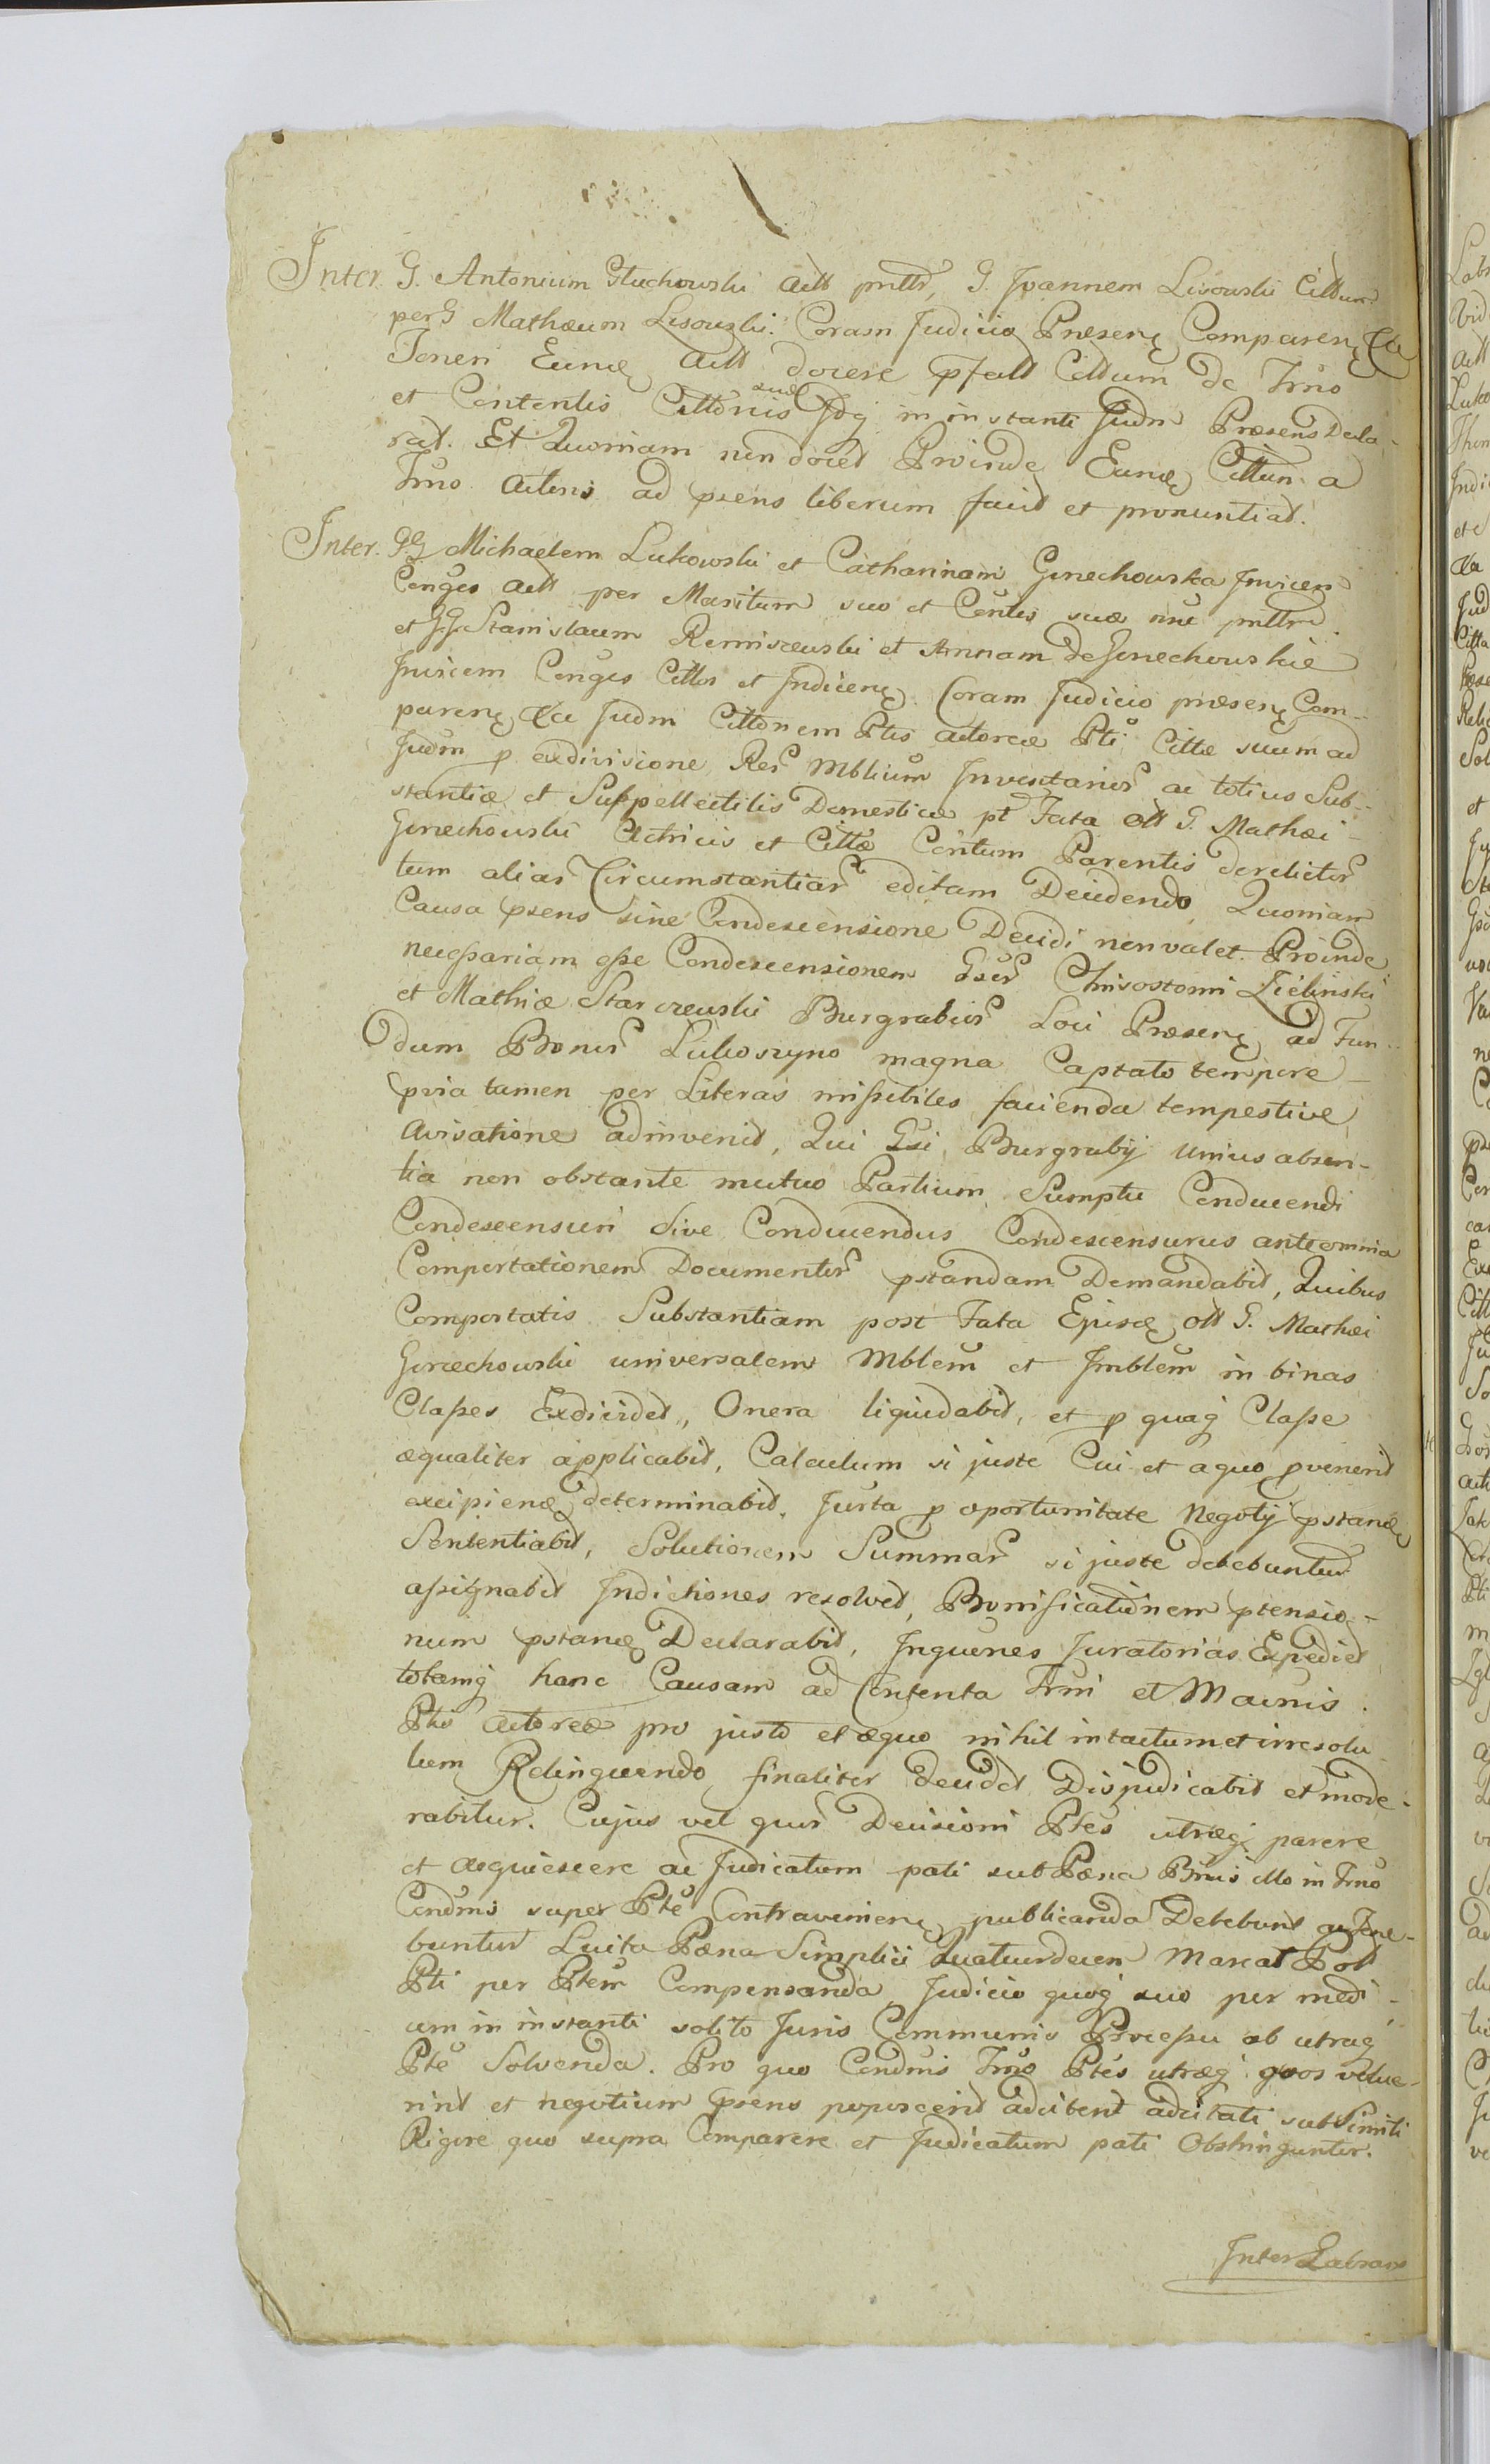 Inter G. Antonium Gluchowski Actt pntts, G. Joannem Lisowski Cittum
per G Mathæum Lisowski. Coram Judicio Præsenț Comparenț
Teneri Eund Actt docere pfatt Cittum de Trno
et Contentis Cittonis suæ Idq in instanti Judm Præsens Decla-
rat. Et Quoniam non docet Proinde Eund Cittum a
Trno Actoris ad præsens liberum facit et pronuntiat.
Inter. GG Michaelem Lukowski et Catharinam Gnechowska Invicem
Conges Actt per Maritum suo et Contis suæ nne pnttm
et GG Stanislaum Remiszewski et Annam de Gnechowskie
Invicem Conges Cittos et Indicenț. Coram Judicio præsenț Com-
parenț Judm Cittonem Ptis Actoreæ Pti Cittæ suum ad
Judm p exdivisione Rer Mblium Inventarior ac totius Sub-
stantiæ et Suppellectilis Domesticæ pt Fata ott G. Mathæi
Gnechowski Actricis et Cittæ Contum Parentis derelictor
tum aliar Circumstantiar editam Decidendo, Quoniam
Causa præsens sine Condescensione Decidi non valet. Proinde
necessariam esse Condescensionem Gser Chrisostomi Zielinski
et Mathiæ Starczewski Burgrabior Loci Præsenț ad Fun-
dum Bonor Lukoszyno magna Captato tempore
pvia tamen per Literas missibiles facienda tempestive
Avisatione adinvenit, Qui Gsi Burgrabij Unius absen-
tia non obstante mutuo Partium Sumptu Conducendi
Condescensuri Sive Conducendus Condescensurus ante omnia
Comportationem Documentor pstandam Demandabit, Quibus
Comportatis Substantiam post Fata Ejusd ott G. Mathæi
Gnechowski universalem Mblem et Imblem in binas
Classes Exdividet, Onera liquidabit, et p quaq Classe
æqualiter applicabit, Calculum si juste Cui et a quo pvenerit
excipiend determinabit. Jurta p oportunitate Negotij pstand
Sententiabit, Solutionem Summar si juste debebuntur
assignabit Indictiones resolvet, Bonificationem ptensio-
num pstand Declarabit, Inquones Juratorias Expediet
totamq hanc Causam ad Contenta Trni et Maînis
Ptis Actoreæ pro justo et æquo nihil intactum et irresolu-
tum Relinquendo finaliter decidet Disjudicabit et mode-
rabitur. Cujus vel quor Decisioni Ptes utræq parere
et acquiescere ac Judicatum pati sub Pæna Bnnis illo in Trno
Condnis super Pte Contravenienț publicanda Debebunt ac Tene-
buntur Luita Pæna Simplici Quatuordecem Marcar Pol
Pti per Ptem Compensanda Judicio quoq suo per medi-
um in instanti solito Juris Communis Processu ab utraq
Pte Solvenda. Pro quo Condnis Trno Ptes utræq quos volue-
rint et negotium præsens poposcerit adcitent adcitati sub Simili
Rigore quo supra Comparere et Judicatum pati Obstringuntur.